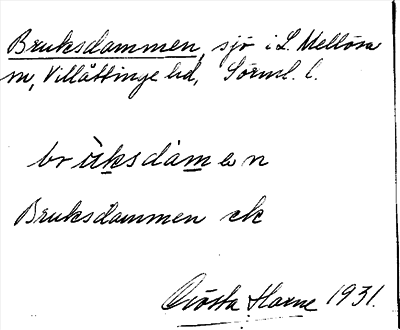 Bruksdammen, sjö i L. Mellösa
sn, Villåttinge hd, Sörml. l.
brùksdàmən
Bruksdammen ek
Gösta Harne 1931.